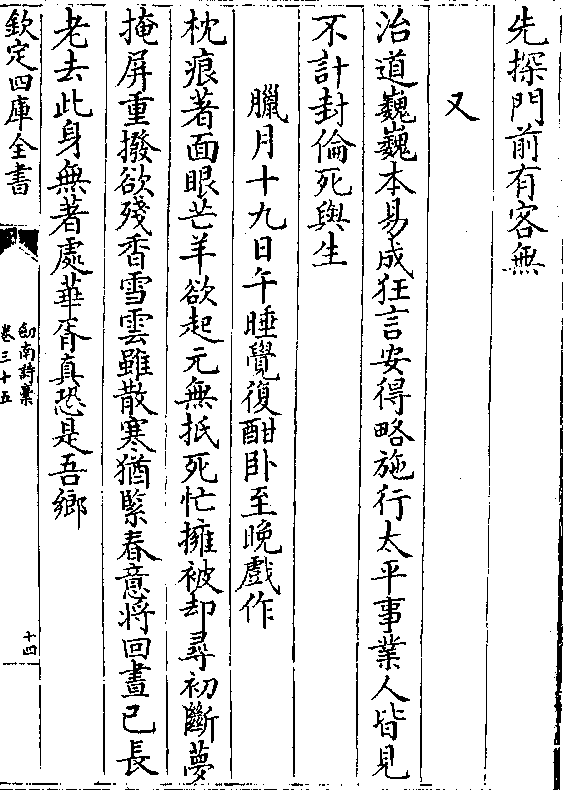 先探門前有客無
又
治道巍巍本易成狂言安得略施行太平事業人皆見
不計封倫死與生
臘月十九日午睡覺復酣卧至晚戲作
枕痕著面眼芒羊欲起元無抵死忙擁被却尋初斷夢
掩屏重撥欲殘香雪雲雖散寒猶緊春意將回晝已長
老去此身無著處華胥真恐是吾鄉
欽定四庫全書
劍南詩稾
卷三十五
十四